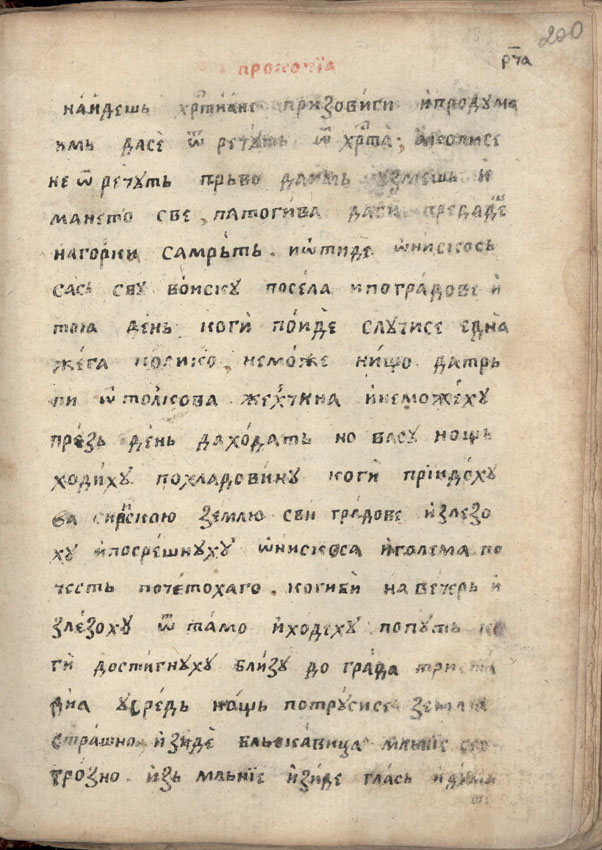 200
р҃ча
прокопїа
найдешь хрⷭ҇тїане призовиги ипродума
имь дасе ѿ ретуть ѿ хрⷭ҇та; акописе
не ѿ речуть прьво даимь узмешь и
мането све, патогива даги предаде
нагорки самрьть. иѿтиде ѡнискось
сась сву воиску посела ипоградове и
тоиа день коги поиде случисе една
жега колико, неможе нищо датрь
пи ѿ толкова жехчина инеможеху
презь день даходать но васу нощь
ходиху похладовину коги прїидоху
ва сирⷭ҇кою землю сви градове излезо
ху ипосрешнуху ѡнискоса иголема по
честь почетохаго. когиби навечерь и
злезоху ѿ тамо иходеху попуть ко
ги достигнуху близу до града
дна усредь нощь потрусисе землꙗ
страшно, изиде бльскавица мльнїе
грозно. изь мльнїе изиде глась идума